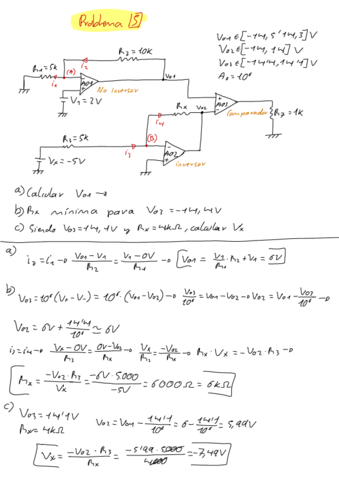 Problema [5]
R2 = 10k
V01 ∈ [-14,5 ; 14,3] V
V02 ∈ [-14, 14] V
V03 ∈ [-14,4, 14,4] V
A0 = 10⁶
R1 = 5k
(A)
i2
i1
A01
V01
No inversor
V1 = 2V
Rx
V02
A03
Comparador
R7 = 1k
i4
R3 = 5k
(B)
i3
A02
inversor
Vx = -5V
a) Calcular V01 →
b) Rx mínima para V03 = -14,4V
c) Siendo V03 = 14,1V y Rx = 4kΩ, calcular Vx
a)
i2 = i1 → (V01 - V1)/R2 = (V1 - 0V)/R1 → V01 = V1/R1 · R2 + V1 = 6V
b) V03 = 10⁶ (V+ - V-) = 10⁶ · (V01 - V02) → V03/10⁶ = V01 - V02 → V02 = V01 - V03/10⁶ →
V02 = 6V + 14'4/10⁶ ≈ 6V
i3 = i4 → (Vx - 0V)/R3 = (0V - V02)/Rx → Vx/R3 = -V02/Rx → Rx · Vx = -V02 · R3 →
Rx = -V02 · R3/Vx = -6V · 5000/-5V = 6000Ω = 6kΩ
c)
V03 = 14'1V
Rx = 4kΩ
V02 = V01 - 14'1/10⁶ = 6 - 14'1/10⁶ = 5,99V
Vx = -V02 · R3/Rx = -5'99 · 5000/4000 = -7,49V